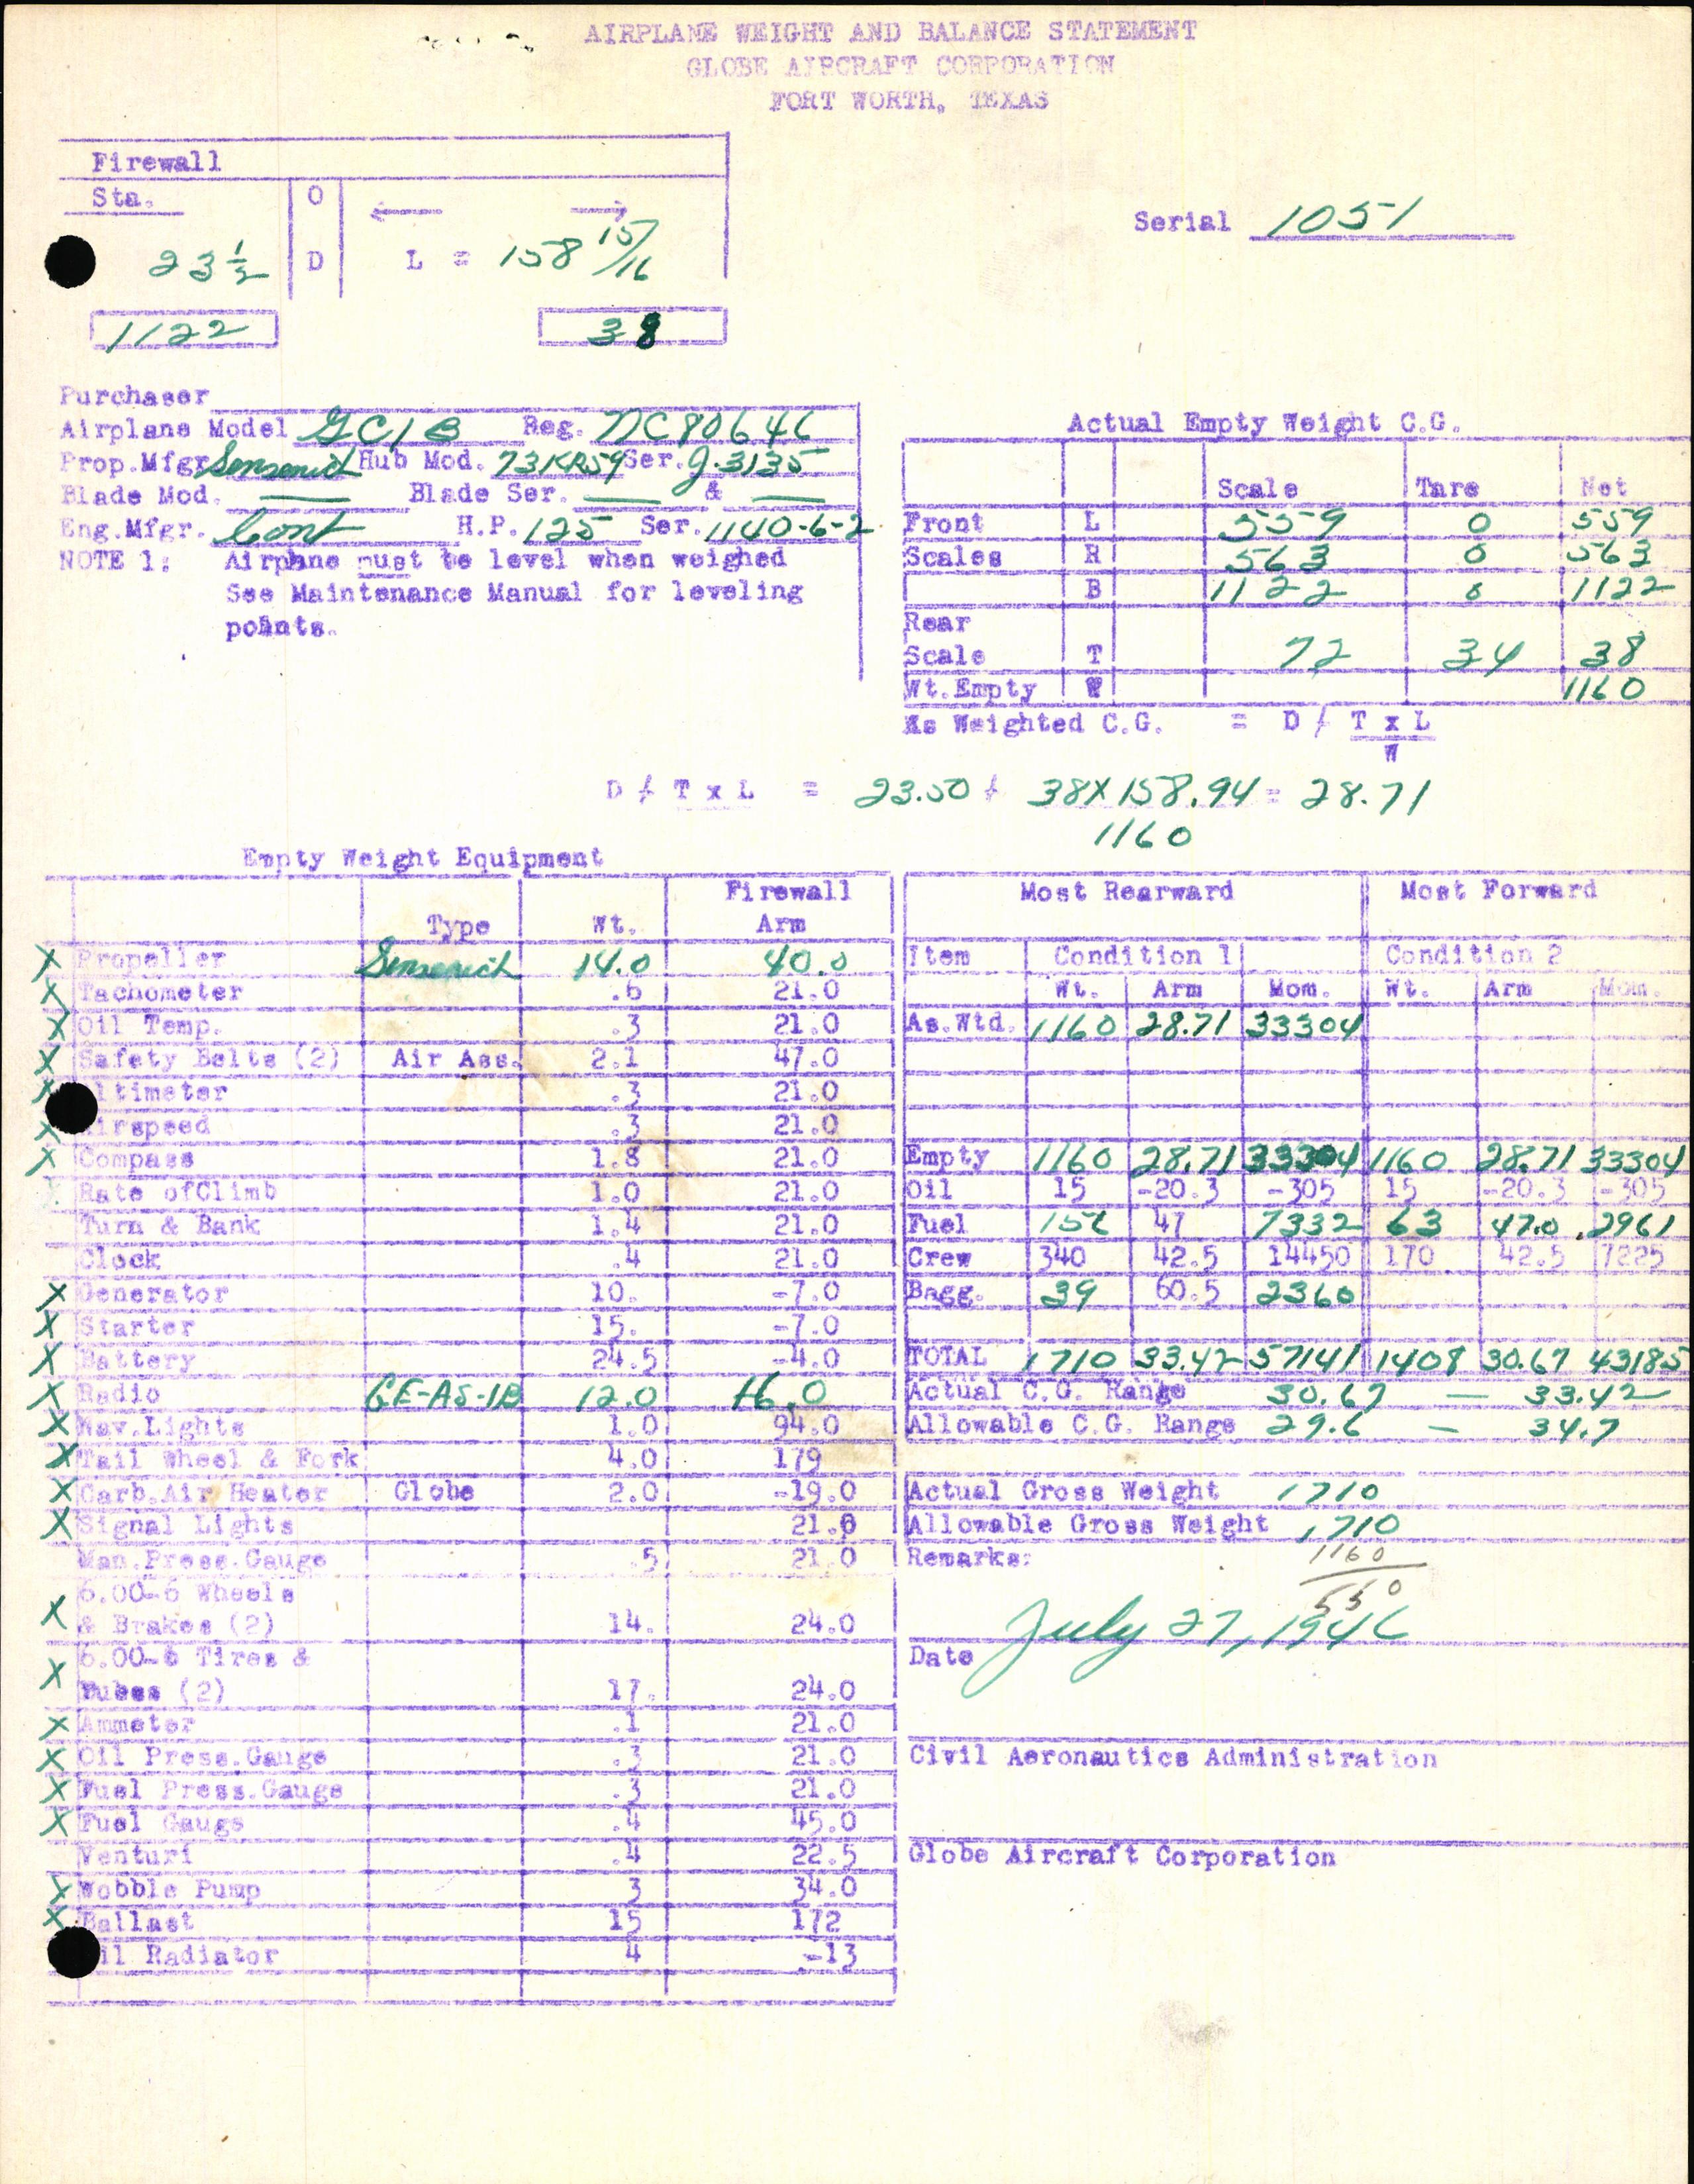 AIRPLANE WEIGHT AND BALANCE STATEMENT
GLOBE AIRCRAFT CORPORATION
FORT WORTH, TEXAS
Firewall
Sta. O
23 1/2 D L = 158 15/16
1122 38
Serial 1051
Purchaser
Airplane Model GC1B Reg. NC80646
Prop.Mfgr Sensenich Hub Mod. 73KR59 Ser. J-3135
Blade Mod. — Blade Ser. — & —
Eng.Mfgr. Cont H.P. 125 Ser. 1140-6-2
NOTE 1: Airplane must be level when weighed
See Maintenance Manual for leveling
points.
Actual Empty Weight C.G.
Scale Tare Net
Front L 559 0 559
Scales R 563 0 563
B 1122 0 1122
Rear
Scale T 72 34 38
Wt.Empty W 1160
As Weighted C.G. = D / T x L
W
D / T x L = 23.50 / 38X158.94 = 28.71
1160
Empty Weight Equipment
Type Wt. Firewall Arm
X Propeller Sensenich 14.0 40.0
X Tachometer .6 21.0
X Oil Temp. .3 21.0
X Safety Belts (2) Air Ass. 2.1 47.0
X ltimeter .3 21.0
X irspeed .3 21.0
X Compass 1.8 21.0
Rate ofClimb 1.0 21.0
Turn & Bank 1.4 21.0
Clock .4 21.0
X Generator 10. -7.0
X Starter 15. -7.0
X Battery 24.5 -4.0
X Radio GE-AS-1B 12.0 16.0
X Nav.Lights 1.0 94.0
X Tail Wheel & Fork 4.0 179
X Carb.Air Heater Globe 2.0 -19.0
X Signal Lights 21.0
Man.Press.Gauge .5 21.0
6.00-6 Wheels
X & Brakes (2) 14. 24.0
6.00-6 Tires &
X Tubes (2) 17. 24.0
X Ammeter .1 21.0
X Oil Press.Gauge .3 21.0
X Fuel Press.Gauge .3 21.0
X Fuel Gauge .4 45.0
Venturi .4 22.5
X Wobble Pump 3 34.0
X Ballast 15 172
il Radiator 4 -13
Most Rearward Most Forward
Item Condition 1 Condition 2
Wt. Arm Mom. Wt. Arm Mom.
As.Wtd. 1160 28.71 33304
Empty 1160 28.71 33304 1160 28.71 33304
Oil 15 -20.3 -305 15 -20.3 -305
Fuel 156 47 7332 63 47.0 2961
Crew 340 42.5 14450 170 42.5 7225
Bagg. 39 60.5 2360
TOTAL 1710 33.42 57141 1408 30.67 43185
Actual C.G. Range 30.67 — 33.42
Allowable C.G. Range 29.6 — 34.7
Actual Gross Weight 1710
Allowable Gross Weight 1710
Remarks: 1160
550
July 27, 1946
Date
Civil Aeronautics Administration
Globe Aircraft Corporation